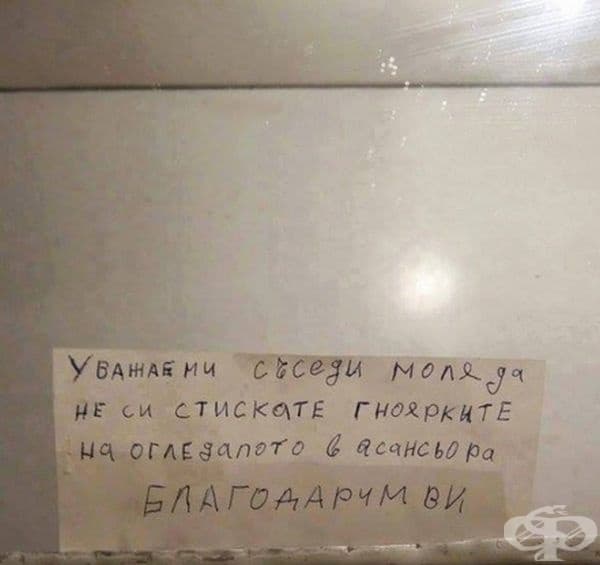 Уважаеми съседи моля да
не си стискате гноярките
на огледалото в асансьора
БЛАГОДАРИМ ВИ